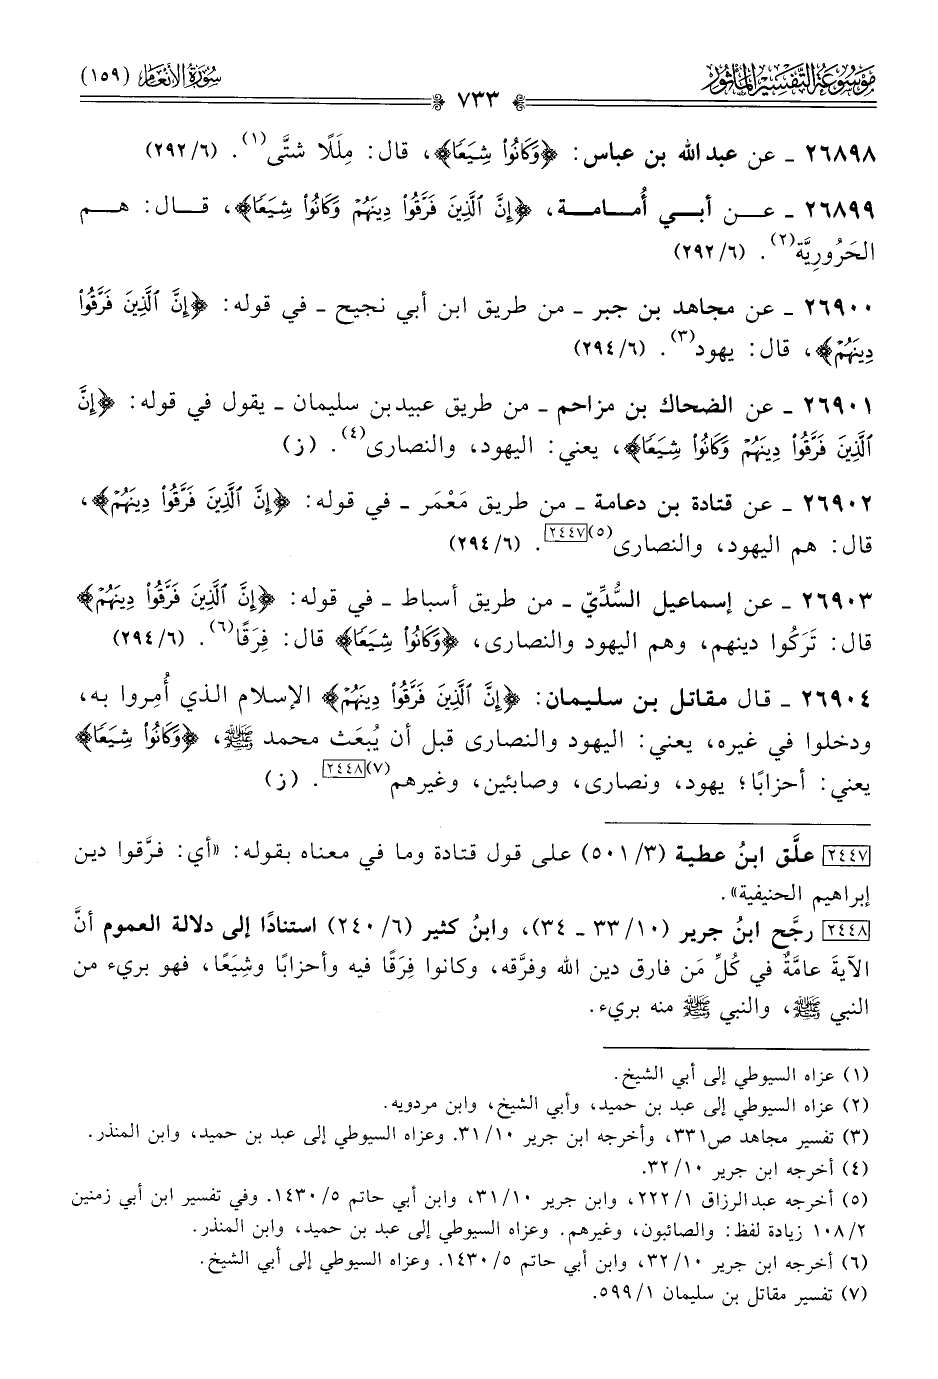 موسوعة التفسير المأثور
سورة الأنعام (١٥٩)
٧٣٣
٢٦٨٩٨ ـ عن عبد الله بن عباس: ﴿وَكَانُوا۟ شِيَعًا﴾، قال: مِلَلًا شتَّى(١). (٢٩٢/٦)
٢٦٨٩٩ ـ عـن أبـي أُمـامـة، ﴿إِنَّ ٱلَّذِينَ فَرَّقُوا۟ دِينَهُمْ وَكَانُوا۟ شِيَعًا﴾، قـال: هـم
الحَرُورِيَّة(٢). (٢٩٢/٦)
٢٦٩٠٠ ـ عن مجاهد بن جبر ـ من طريق ابن أبي نجيح ـ في قوله: ﴿إِنَّ ٱلَّذِينَ فَرَّقُوا۟
دِينَهُمْ﴾، قال: يهود(٣). (٢٩٤/٦)
٢٦٩٠١ ـ عن الضحاك بن مزاحم ـ من طريق عبيد بن سليمان ـ يقول في قوله: ﴿إِنَّ
ٱلَّذِينَ فَرَّقُوا۟ دِينَهُمْ وَكَانُوا۟ شِيَعًا﴾، يعني: اليهود، والنصارى(٤). (ز)
٢٦٩٠٢ ـ عن قتادة بن دعامة ـ من طريق مَعْمَر ـ في قوله: ﴿إِنَّ ٱلَّذِينَ فَرَّقُوا۟ دِينَهُمْ﴾،
قال: هم اليهود، والنصارى(٥)[٢٤٤٧]. (٢٩٤/٦)
٢٦٩٠٣ ـ عن إسماعيل السُّدِّيّ ـ من طريق أسباط ـ في قوله: ﴿إِنَّ ٱلَّذِينَ فَرَّقُوا۟ دِينَهُمْ﴾
قال: تَرَكُوا دينهم، وهم اليهود والنصارى، ﴿وَكَانُوا۟ شِيَعًا﴾ قال: فِرَقًا(٦). (٢٩٤/٦)
٢٦٩٠٤ ـ قال مقاتل بن سليمان: ﴿إِنَّ ٱلَّذِينَ فَرَّقُوا۟ دِينَهُمْ﴾ الإسلام الذي أُمِروا به،
ودخلوا في غيره، يعني: اليهود والنصارى قبل أن يُبعَث محمد ﷺ، ﴿وَكَانُوا۟ شِيَعًا﴾
يعني: أحزابًا؛ يهود، ونصارى، وصابئين، وغيرهم(٧)[٢٤٤٨]. (ز)
[٢٤٤٧] علَّق ابنُ عطية (٥٠١/٣) على قول قتادة وما في معناه بقوله: «أي: فرَّقوا دين
إبراهيم الحنيفية».
[٢٤٤٨] رجَّح ابنُ جرير (٣٣/١٠ ـ ٣٤)، وابنُ كثير (٢٤٠/٦) استنادًا إلى دلالة العموم أنَّ
الآيةَ عامَّةٌ في كُلِّ مَن فارق دين الله وفرَّقه، وكانوا فِرَقًا فيه وأحزابًا وشِيَعًا، فهو بريء من
النبي ﷺ، والنبي ﷺ منه بريء.
(١) عزاه السيوطي إلى أبي الشيخ.
(٢) عزاه السيوطي إلى عبد بن حميد، وأبي الشيخ، وابن مردويه.
(٣) تفسير مجاهد ص٣٣١، وأخرجه ابن جرير ٣١/١٠. وعزاه السيوطي إلى عبد بن حميد، وابن المنذر.
(٤) أخرجه ابن جرير ٣٢/١٠.
(٥) أخرجه عبدالرزاق ٢٢٢/١، وابن جرير ٣١/١٠، وابن أبي حاتم ١٤٣٠/٥. وفي تفسير ابن أبي زمنين
١٠٨/٢ زيادة لفظ: والصائبون، وغيرهم. وعزاه السيوطي إلى عبد بن حميد، وابن المنذر.
(٦) أخرجه ابن جرير ٣٢/١٠، وابن أبي حاتم ١٤٣٠/٥. وعزاه السيوطي إلى أبي الشيخ.
(٧) تفسير مقاتل بن سليمان ٥٩٩/١.